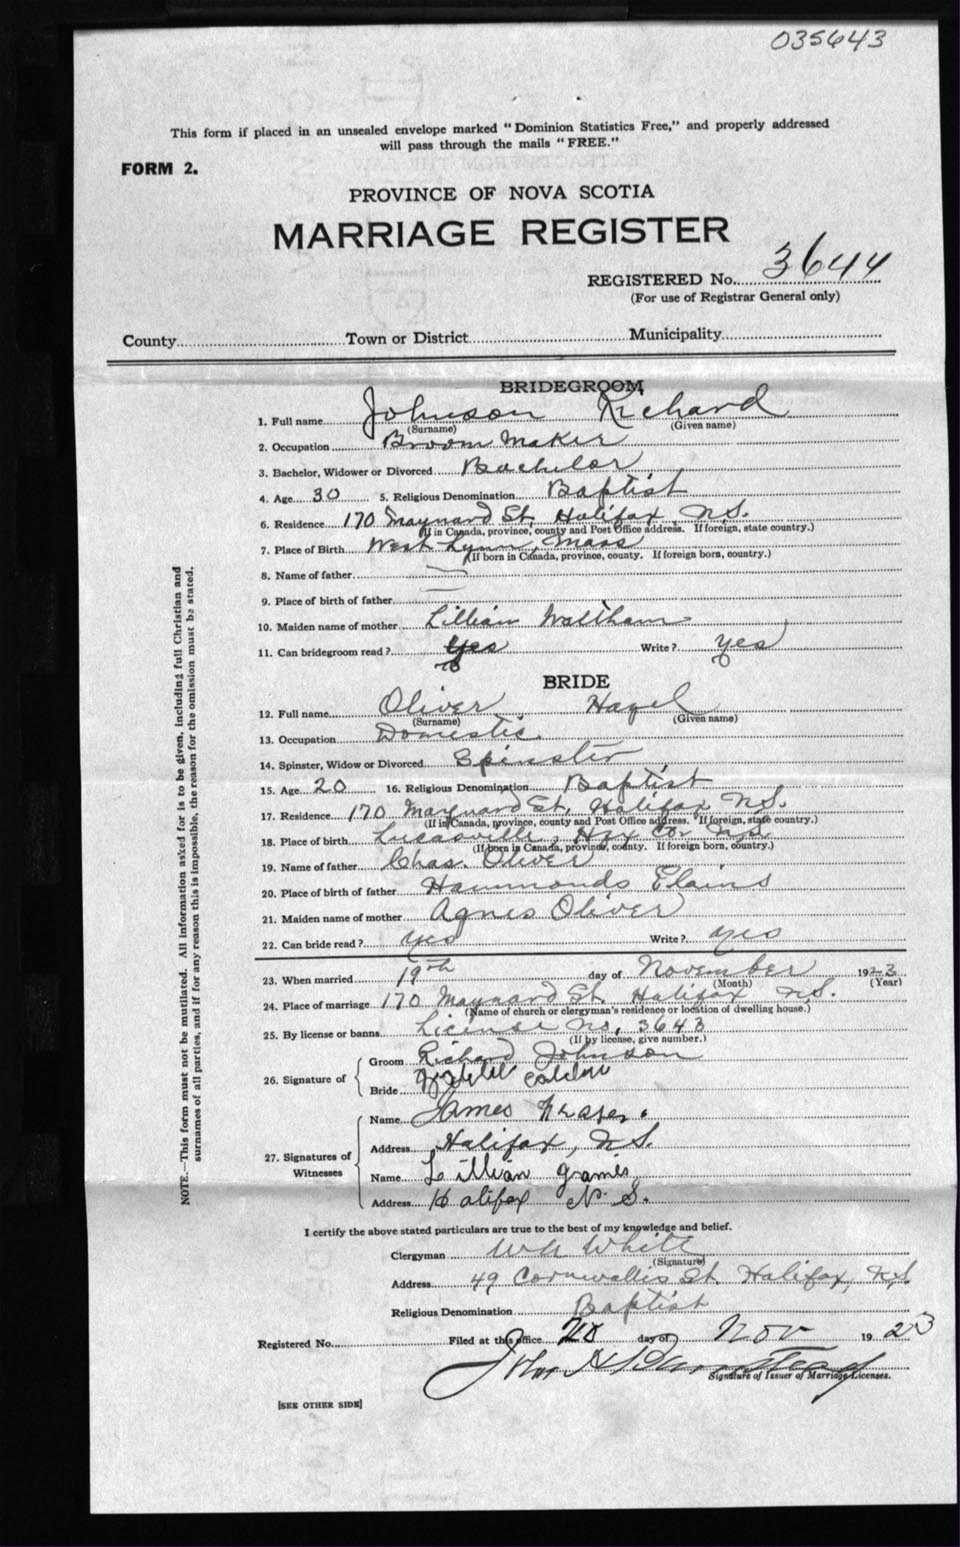 035643
This form if placed in an unsealed envelope marked "Dominion Statistics Free," and properly addressed
will pass through the mails "FREE."
FORM 2.
PROVINCE OF NOVA SCOTIA
MARRIAGE REGISTER
REGISTERED No. 3644
(For use of Registrar General only)
County Town or District Municipality
BRIDEGROOM
1. Full name Johnson Richard
(Surname) (Given name)
2. Occupation Broom Maker
3. Bachelor, Widower or Divorced Bachelor
4. Age 30 5. Religious Denomination Baptist
6. Residence 170 Maynard St. Halifax N.S.
(If in Canada, province, county and Post Office address. If foreign, state country.)
7. Place of Birth West Lynn, Mass
(If born in Canada, province, county. If foreign born, country.)
8. Name of father —
9. Place of birth of father —
10. Maiden name of mother Lillian Waltham
11. Can bridegroom read? Yes Write? yes
BRIDE
12. Full name Oliver Hazel
(Surname) (Given name)
13. Occupation Domestic
14. Spinster, Widow or Divorced Spinster
15. Age 20 16. Religious Denomination Baptist
17. Residence 170 Maynard St. Halifax N.S.
(If in Canada, province, county and Post Office address. If foreign, state country.)
18. Place of birth Lucasville, Hfx Co. N.S.
(If born in Canada, province, county. If foreign born, country.)
19. Name of father Chas. Oliver
20. Place of birth of father Hammonds Plains
21. Maiden name of mother Agnes Oliver
22. Can bride read? yes Write? yes
23. When married 19th day of November 1923
(Month) (Year)
24. Place of marriage 170 Maynard St. Halifax N.S.
(Name of church or clergyman's residence or location of dwelling house.)
25. By license or banns License No. 3643
(If by license, give number.)
26. Signature of
Groom Richard Johnson
Bride
27. Signatures of Witnesses
Name James
Address Halifax, N.S.
Name Lillian
Address Halifax N. S.
I certify the above stated particulars are true to the best of my knowledge and belief.
Clergyman WA White
(Signature)
Address 49 Cornwallis St. Halifax, N.S.
Religious Denomination Baptist
Registered No. Filed at this office day of Nov 1923
Signature of Issuer of Marriage Licenses.
[SEE OTHER SIDE]
NOTE.—This form must not be mutilated. All information asked for is to be given, including full Christian and
surnames of all parties, and if for any reason this is impossible, the reason for the omission must be stated.